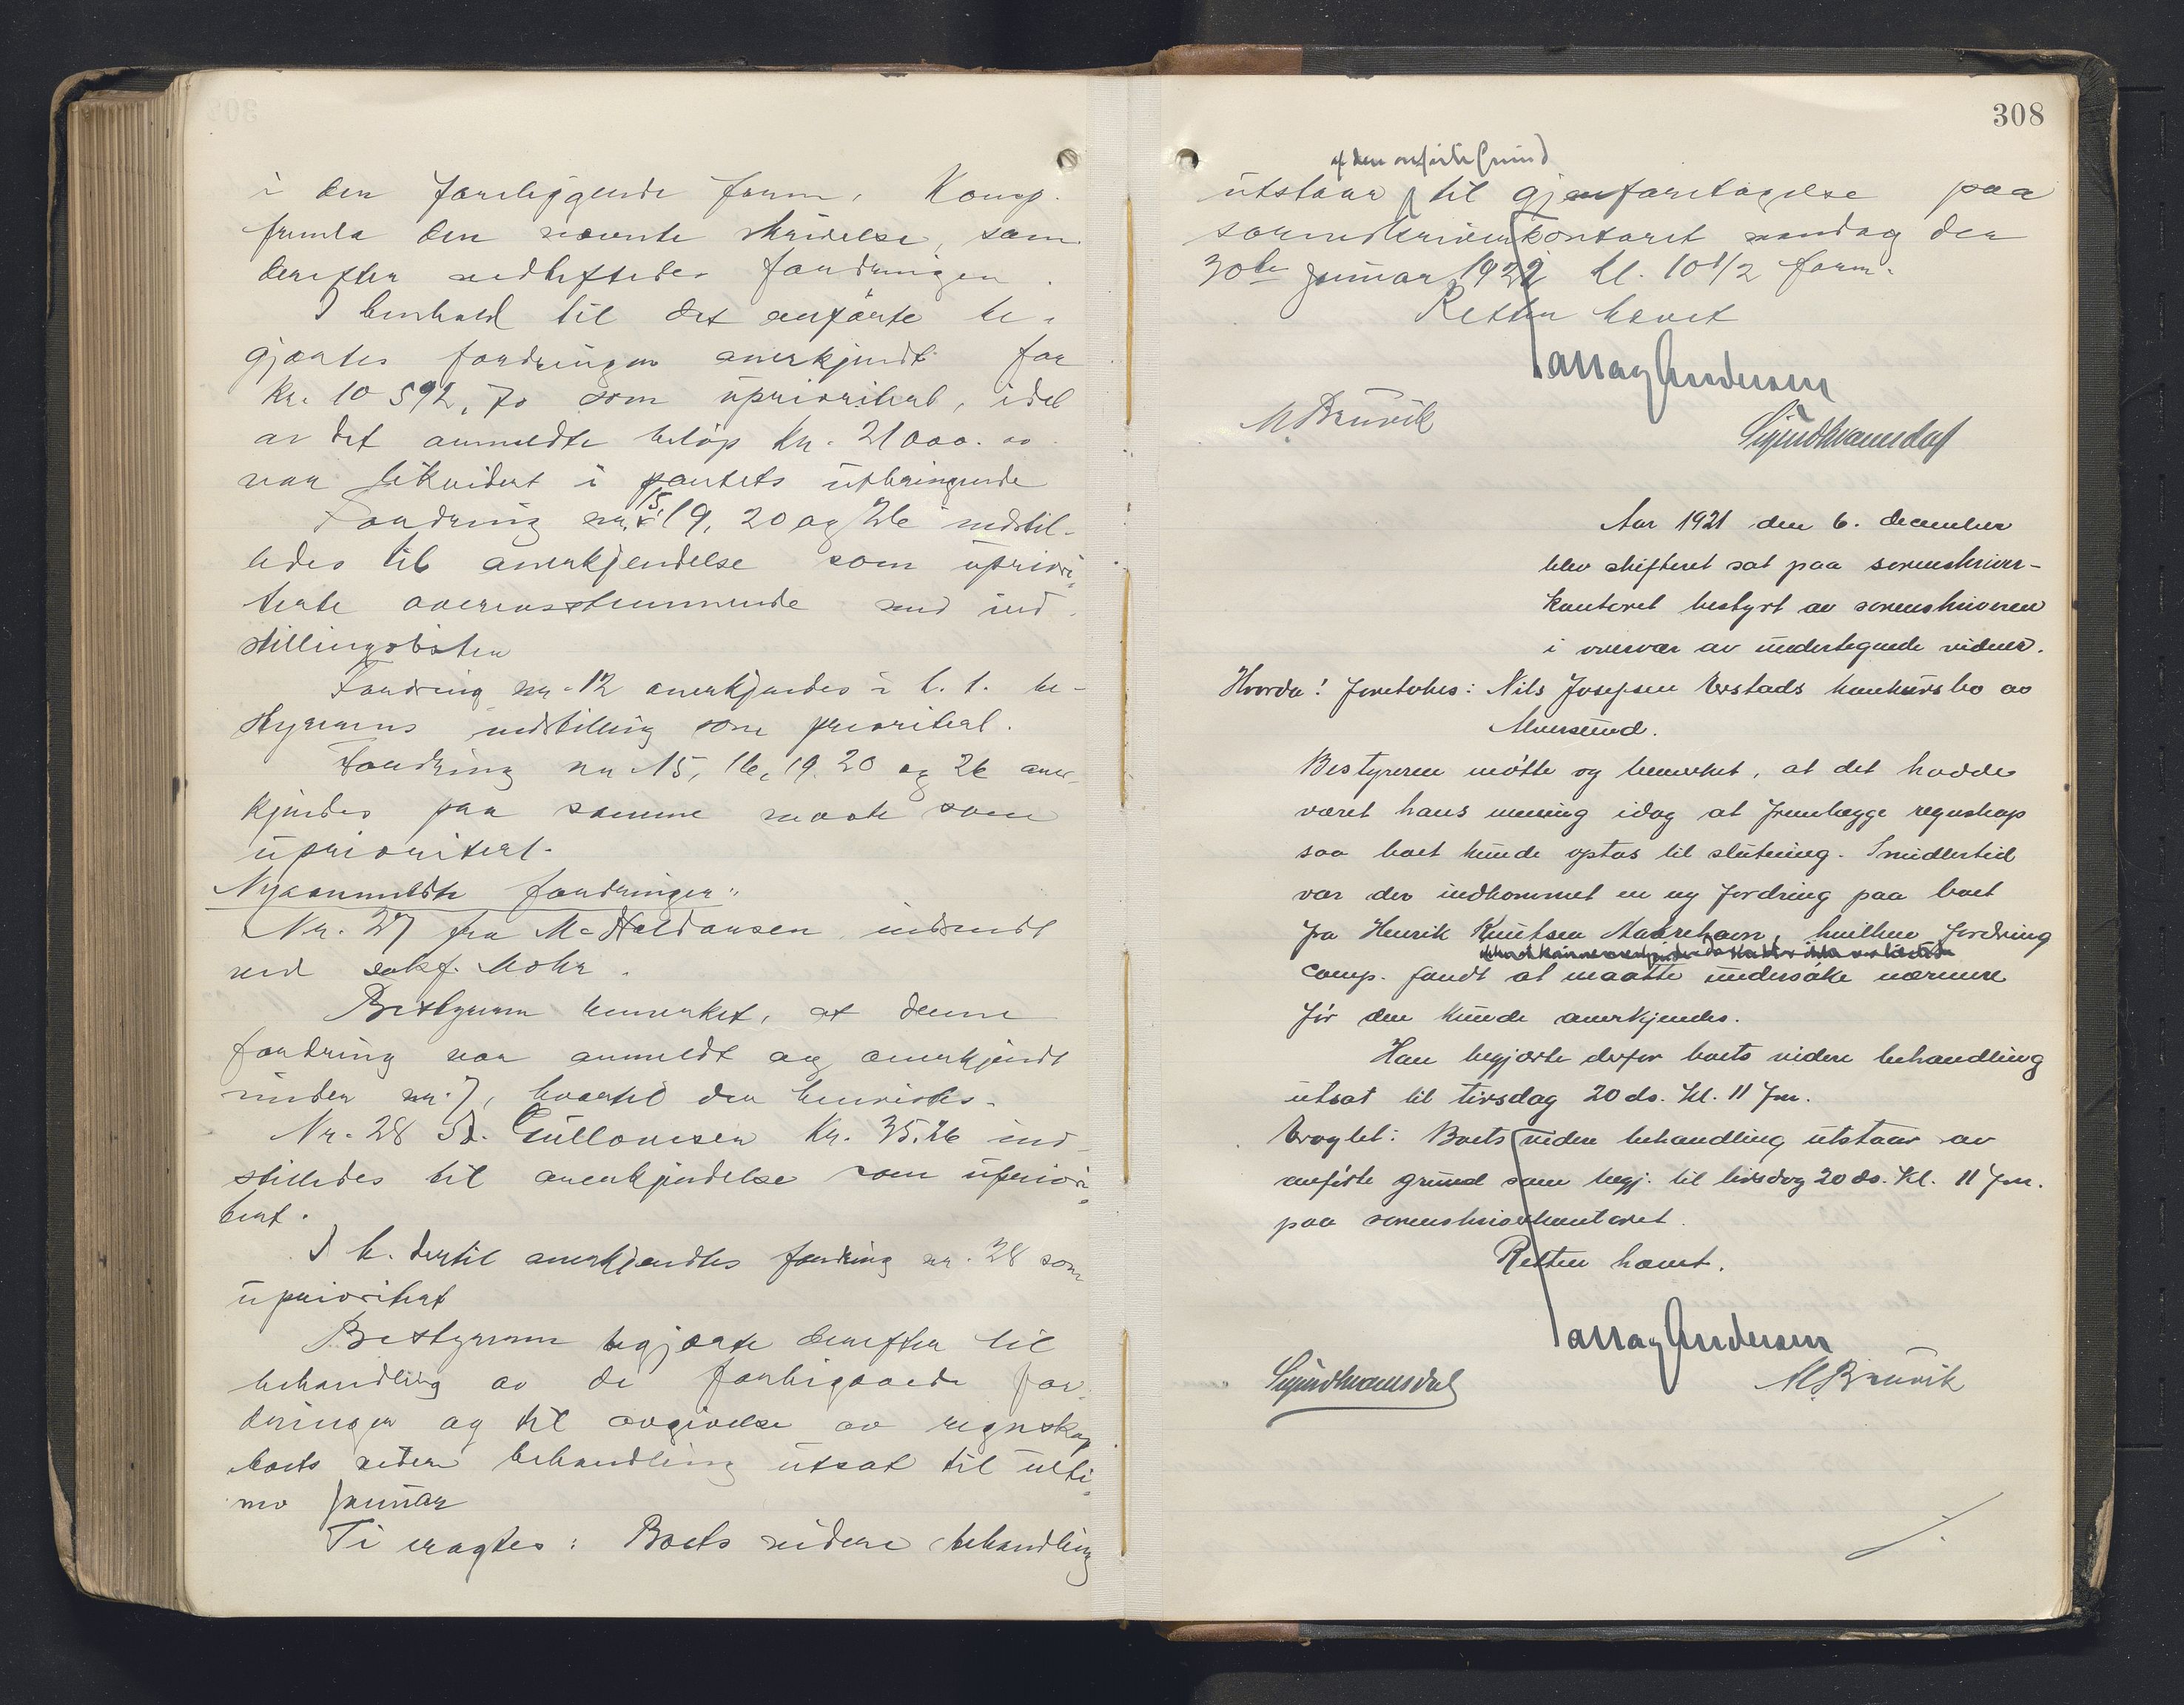 i den foreliggende form. Komp.
fremla den nævnte skrivelse, som
derefter vedheftedes fordringen.
I henhold til det anførte be-
gjærtes fordringen anerkjendt for
Kr. 10 592,70 som uprioritert, idet
av det anmeldte beløp Kr. 21000.00
var likvidert i pantets utbringende
Fordring nr. 15, 19, 20 og 26 indstil-
ledes til anerkjendelse som upriori-
terte overensstemmende med ind-
stillingslisten
Fordring nr. 12 anerkjendes i h. t. be-
styrerens indstilling som prioritert.
Fordring nr 15, 16, 19, 20 og 26 aner-
kjendes paa samme maate som
uprioritert.
Nyanmeldte fordringer:
Nr. 27 fra M. Haldansen indsendt
ved sakf. Mohr.
Bestyreren bemerket, at denne
fordring var anmeldt og anerkjendt
under nr. 7, hvortil den henvistes.
Nr. 28 Gullovsen Kr. 35.26 ind-
stilledes til anerkjendelse som upriori-
tert.
I h. dertil anerkjendtes fordring nr. 28 som
uprioritert
Bestyreren begjærte derefter til
behandling av de forbigaaede for-
dringer og til avgivelse av regnskap
boets videre behandling utsat til ulti-
mo januar
Ti eragtes: Boets videre behandling
308
af den anførte Grund
utstaar til gjenforetagelse paa
sorenskriverkontoret mandag den
30te januar 1922 kl. 10 1/2 form.
Retten hævet
Andersen
M. Bruvik
Sigurd Kvamsdal
Aar 1921 den 6. december
blev skifteret sat paa sorenskriver-
kontoret bestyrt av sorenskriveren
i overvær av undertegnede vidner.
Hvorda! foretokes: Nils Josefsen Erstads konkursbo av
Alversund.
Bestyreren møtte og bemerket, at det hadde
været hans mening idag at fremlægge regnskap
saa boet kunde optas til slutning. Imidlertid
var der indkommet en ny fordring paa boet
fra Henrik Knutsen, hvilken fordring
comp. fandt at maatte undersøke nærmere
før den kunde anerkjendes.
Han begjærte derfor boets videre behandling
utsat til tirsdag 20 ds. Kl. 11 fm.
Eragtet: Boets videre behandling utstaar av
anførte grund som begj. til tirsdag 20 ds. Kl. 11 fm.
paa sorenskriverkontoret.
Retten hævet.
Andersen
Sigurd Kvamsdal
M. Bruvik